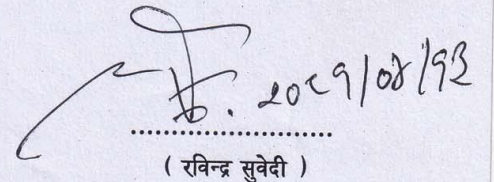 २०८१/०४/१३
( रविन्द्र सुवेदी )